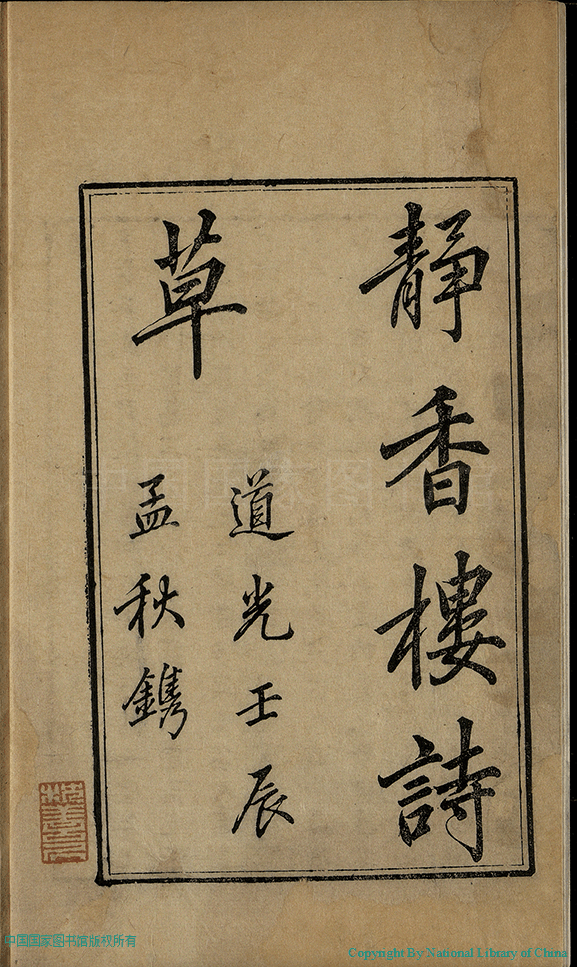 靜香樓詩
草
道光壬辰
孟秋鐫
中国国家图书馆版权所有
Copyright By National Library of China